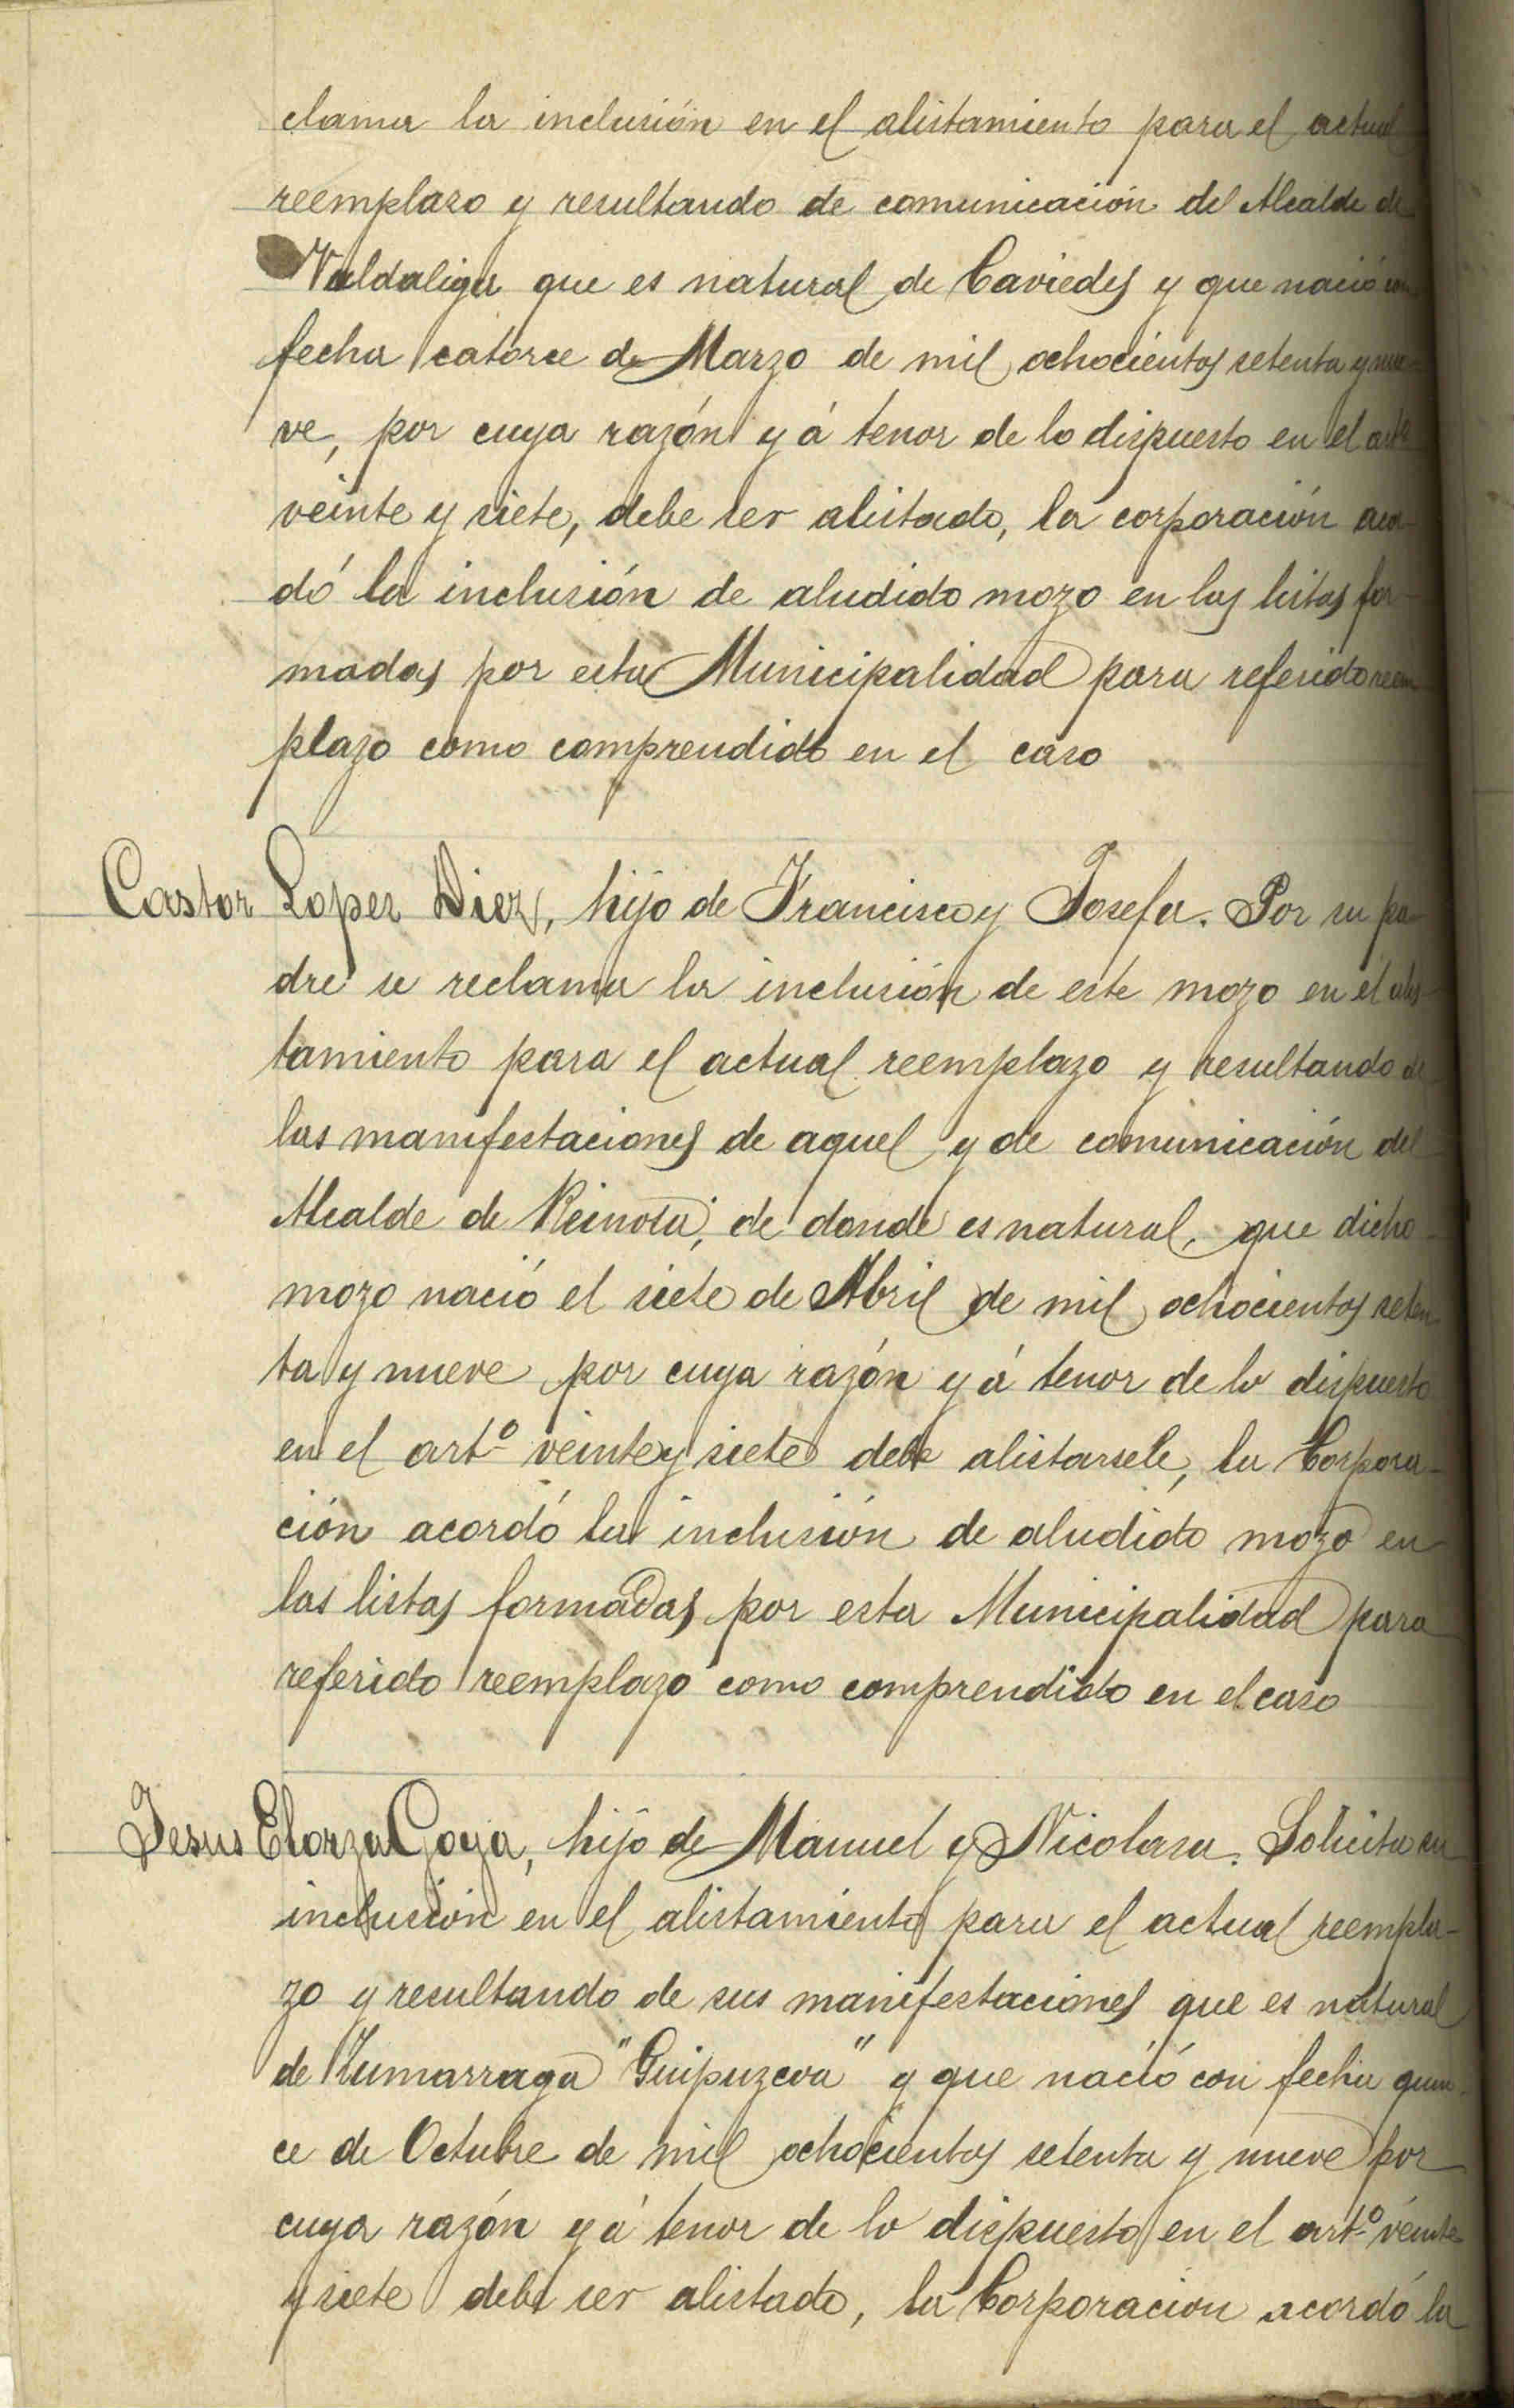 clama la inclusión en el alistamiento para el actual
reemplazo y resultando de comunicación del Alcalde de
Valdaliga que es natural de Caviedes y que nació con
fecha catorce de Marzo de mil ochocientos setenta y nue-
ve, por cuya razón y á tenor de lo dispuesto en el artº
veinte y siete, debe ser alistado, la corporación acor-
dó la inclusión de aludido mozo en las listas for-
madas por esta Municipalidad para referido reem
plazo como comprendido en el caso
Castor Lopez Diez, hijo de Francisco y Josefa. Por su pa-
dre se reclama la inclusión de este mozo en el alis-
tamiento para el actual reemplazo y resultando de
las manifestaciones de aquel y de comunicación del
Alcalde de Reinosa, de donde es natural, que dicho
mozo nació el siete de Abril de mil ochocientos seten-
ta y nueve por cuya razón y á tenor de lo dispuesto
en el artº veinte y siete debe alistarsele, la Corpora-
ción acordó la inclusión de aludido mozo en
las listas formadas por esta Municipalidad para
referido reemplazo como comprendido en el caso
Jesus Elorza Goya, hijo de Manuel y Nicolasa. Solicita su
inclusión en el alistamiento para el actual reempla-
zo y resultando de sus manifestaciones que es natural
de Zumarraga "Guipuzcoa" y que nació con fecha quin-
ce de Octubre de mil ochocientos setenta y nueve por
cuya razón y á tenor de lo dispuesto en el artº veinte
y siete debe ser alistado, la Corporación acordó la